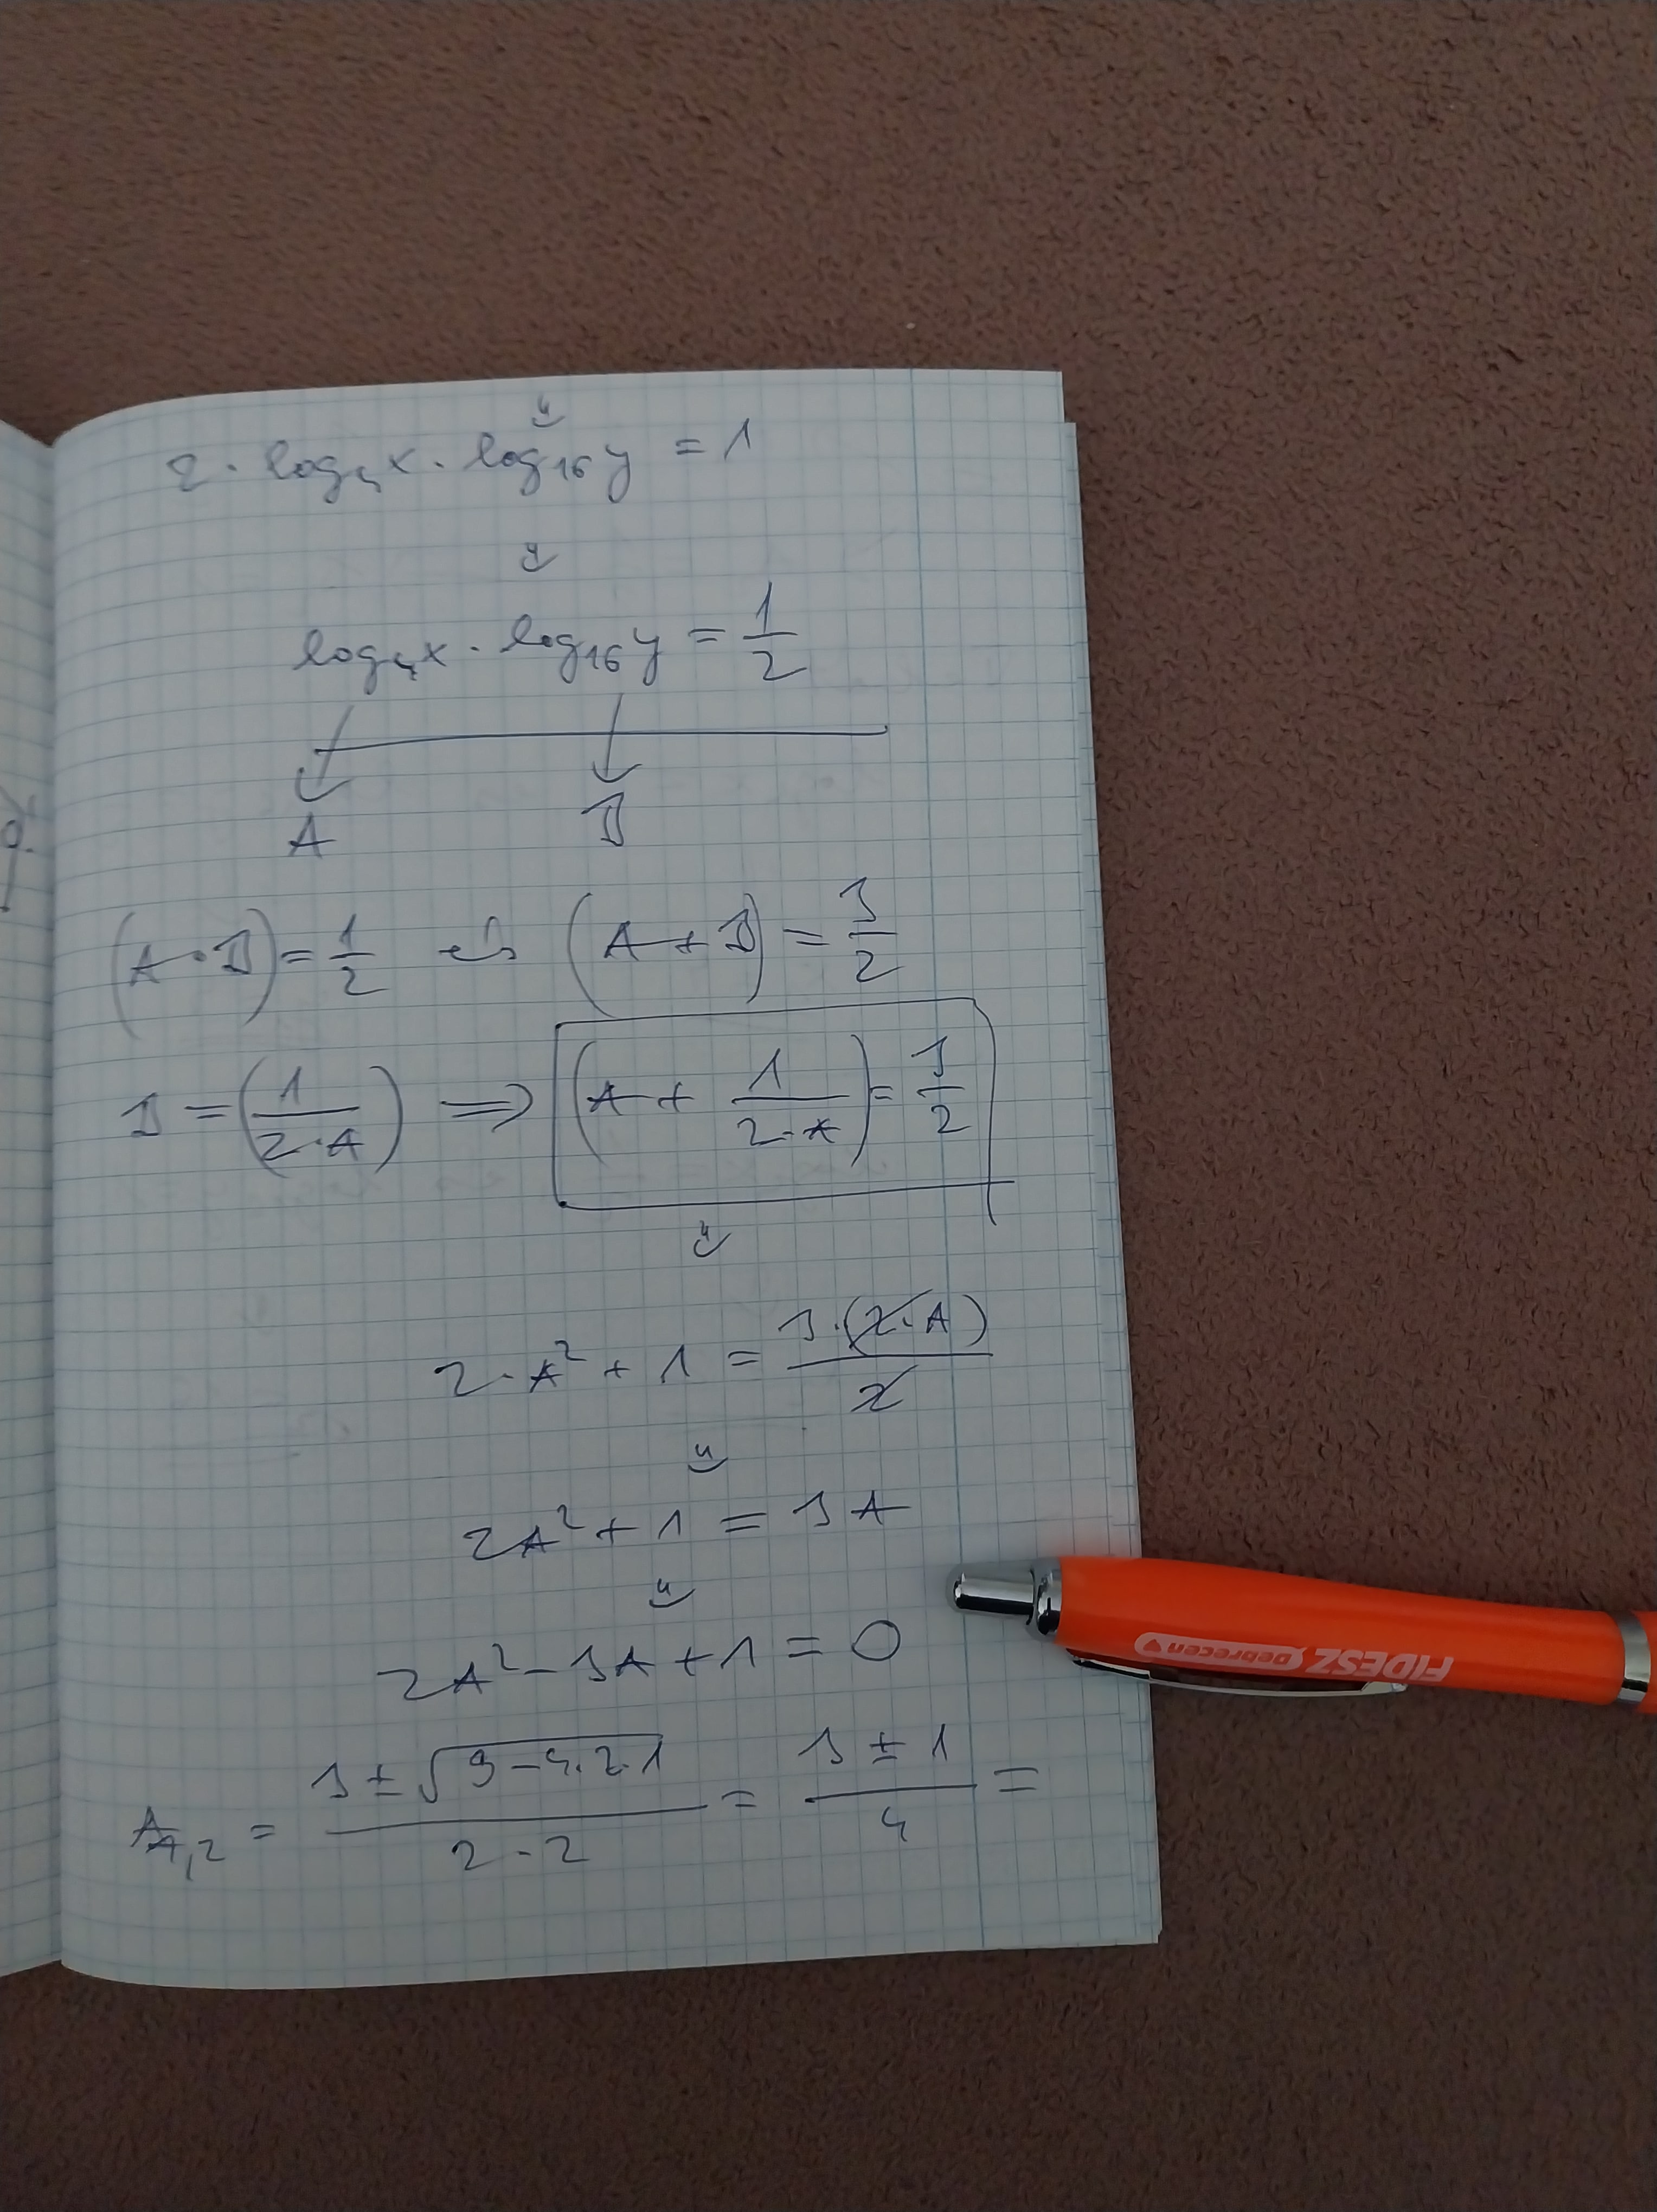 2 · log₄x · log₁₆y = 1
log₄x · log₁₆y = 1/2
A B
(A · B) = 1/2 és (A + B) = 3/2
B = (1/(2·A)) ⟹ (A + 1/(2·A)) = 3/2
2·A² + 1 = 3·(2·A)/2
2A² + 1 = 3A
2A² − 3A + 1 = 0
A₁,₂ = (3 ± √(9−4·2·1))/(2·2) = (3 ± 1)/4 =
FIDESZ Debrecen